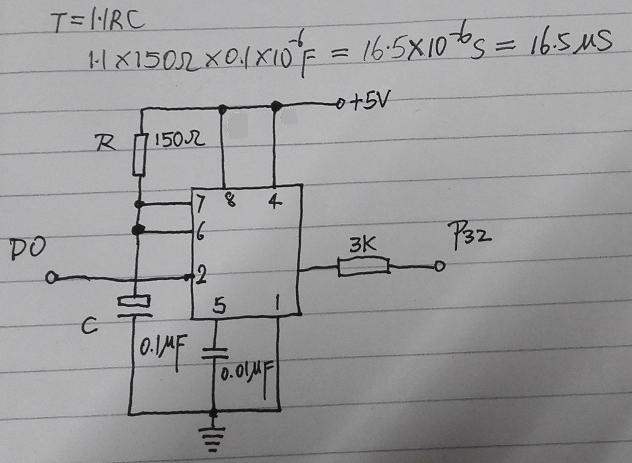 T=1.1RC
1.1×150Ω×0.1×10⁻⁶F = 16.5×10⁻⁶S = 16.5μS
+5V
R 150Ω
7 8 4
6
3K P32
DO
2
5 1
C
0.1μF
0.01μF